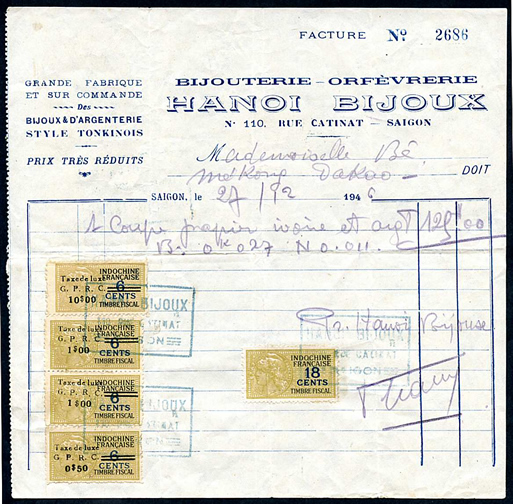 FACTURE Nº 2686
GRANDE FABRIQUE
ET SUR COMMANDE
Des
BIJOUX & D'ARGENTERIE
STYLE TONKINOIS
PRIX TRÈS RÉDUITS
BIJOUTERIE - ORFÈVRERIE
HANOI BIJOUX
Nº 110, RUE CATINAT - SAIGON
Mademoiselle Bé
mékong Dakao DOIT
SAIGON, le 27/12 1946
1 Coupe papier ivoire et argt 125$00
B. 0k027 No.011.
Taxe de luxe
G. P. R. C.
10$00
INDOCHINE
FRANÇAISE
6
CENTS
TIMBRE FISCAL
Taxe de luxe
G. P. R. C.
1$00
INDOCHINE
FRANÇAISE
6
CENTS
TIMBRE FISCAL
Taxe de luxe
G. P. R. C.
1$00
INDOCHINE
FRANÇAISE
6
CENTS
TIMBRE FISCAL
Taxe de luxe
G. P. R. C.
0$50
INDOCHINE
FRANÇAISE
6
CENTS
TIMBRE FISCAL
BIJOUX
CATINAT
Hanoi Bijoux
INDOCHINE
FRANÇAISE
18
CENTS
TIMBRE FISCAL